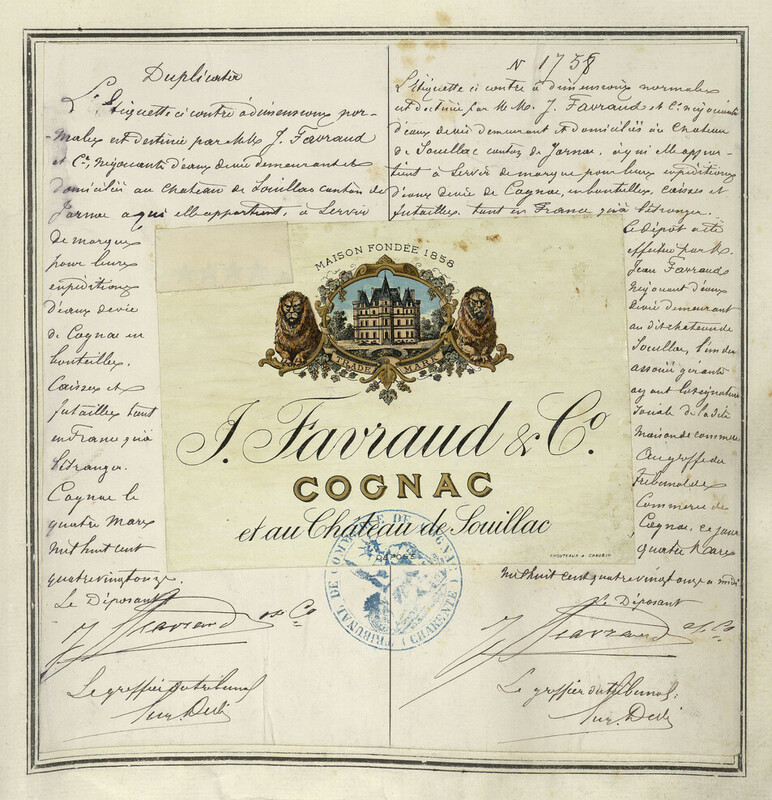 Duplicata
L'Etiquette ci contre à dimensions nor-
-males est destinée par MM. J. Favraud
et Cie, négociants d'eaux de vie demeurant et
domiciliés au chateau de Souillac canton de
Jarnac a qui elle appartient, à servir
de marque
pour leurs
expéditions
d'eaux de vie
de Cognac en
bouteilles,
Caisses et
futailles tant
en France qu'à
l'étranger.
Cognac le
quatre Mars
mil huit cent
quatre vingt onze.
Le Déposant
J. Favraud & Co
Le greffier du tribunal
N 1758
L'Etiquette ci contre à dimensions normales
est destinée par MM. J. Favraud et Cie négociants
d'eaux de vie demeurant et domiciliés au Chateau
de Souillac canton de Jarnac, à qui elle appar-
tient à servir de marque pour leurs expéditions
d'eaux de vie de Cognac, en bouteilles, caisses et
futailles, tant en France qu'à l'étranger.
Le dépôt a été
effectué par M.
Jean Favraud
négociant d'eaux
de vie demeurant
au dit chateau de
Souillac, l'un des
associés gérants
ayant la signature
sociale de la dite
maison de commerce
Au greffe du
Tribunal de
Commerce de
Cognac, ce jour
quatre Mars
mil huit cent quatre vingt onze à midi
Le Déposant
J. Favraud & Co
Le greffier du tribunal
MAISON FONDÉE 1858
TRADE MARK
J. Favraud & Co.
COGNAC
et au Château de Souillac
DÉPOSÉ
TRIBUNAL DE COMMERCE DE COGNAC
(CHARENTE)